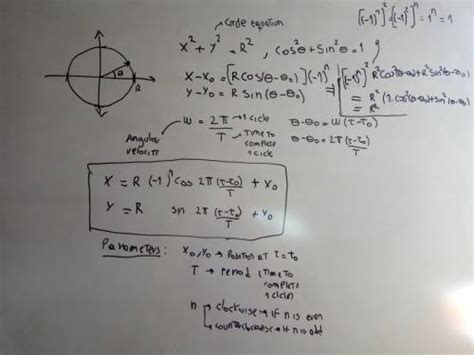 Circle equation
[(-1)^n]^2 = [(-1)^2]^n = 1^n = 1
X^2 + Y^2 = R^2, cos^2θ + sin^2θ = 1
X - X0 = [R cos(θ-θ0)](-1)^n
Y - Y0 = R sin(θ-θ0)
[(-1)^n]^2 R^2cos^2(θ-θ0) + R^2sin^2(θ-θ0)
= R^2 (1.cos^2(θ-θ0) + sin^2(θ-θ0))
= R^2
θ
R
Angular velocity
w = 2π/T
1 cicle
Time to complete 1 cicle
θ-θ0 = w(t-t0)
θ-θ0 = 2π (t-t0)/T
X = R (-1)^n cos 2π (t-t0)/T + X0
Y = R sin 2π (t-t0)/T + Y0
Parameters: X0, Y0 → Position at t = t0
T → period (Time to complete 1 cicle)
n → clockwise → If n is even
→ counterclockwise → If n is odd